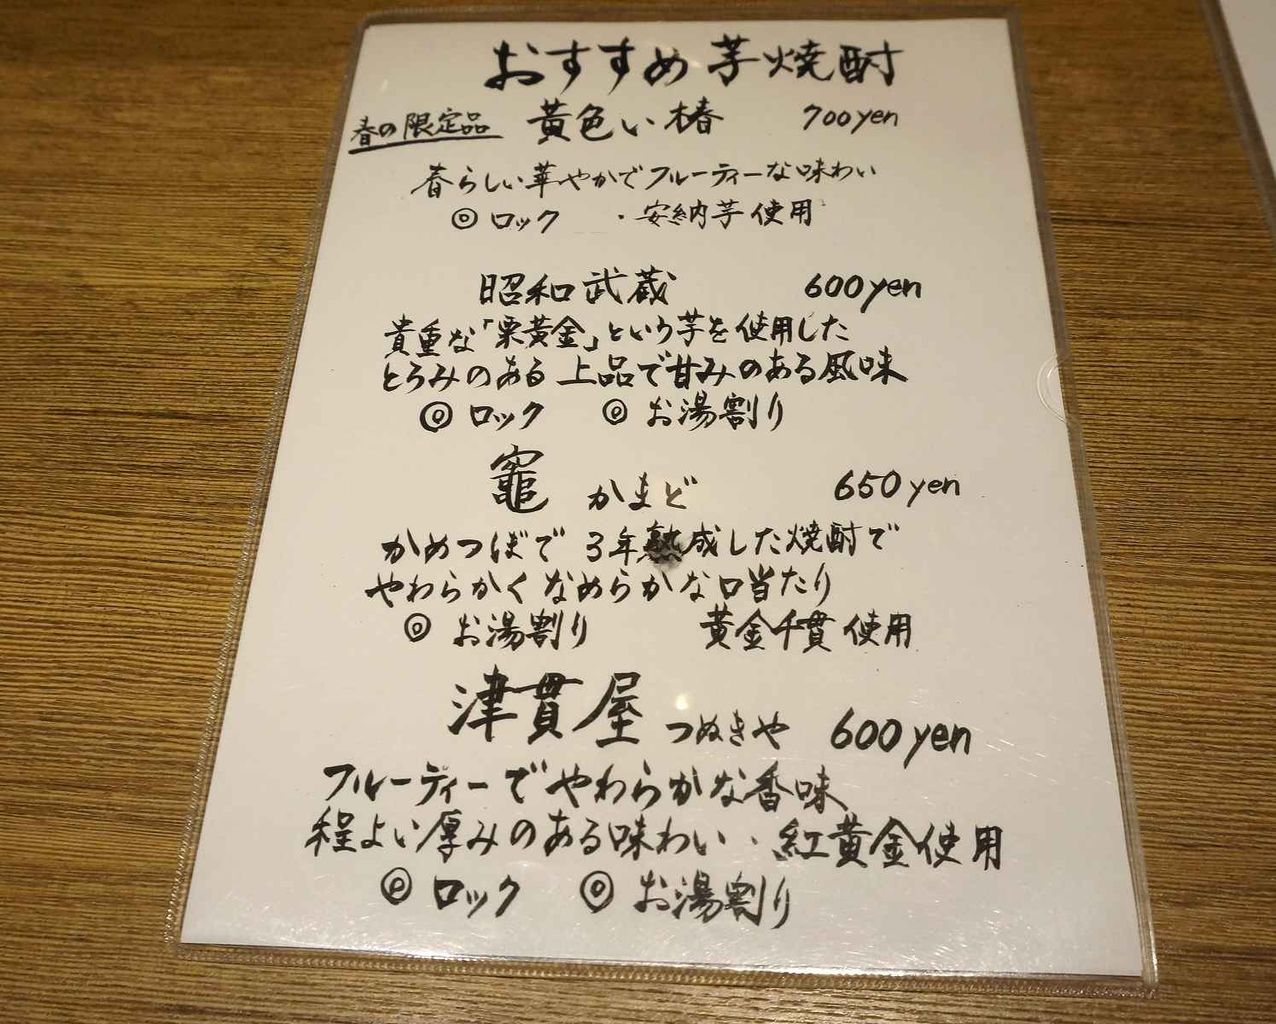 おすすめ芋焼酎
春の限定品 黄色い椿 700yen
春らしい華やかでフルーティーな味わい
◎ ロック ・安納芋使用
昭和武蔵 600yen
貴重な「栗黄金」という芋を使用した
とろみのある上品で甘みのある風味
◎ ロック ◎ お湯割り
竈 かまど 650yen
かめつぼで 3年熟成した焼酎で
やわらかくなめらかな口当たり
◎ お湯割り 黄金千貫使用
津貫屋 つぬきや 600yen
フルーティーでやわらかな香味
程よい厚みのある味わい・紅黄金使用
◎ ロック ◎ お湯割り